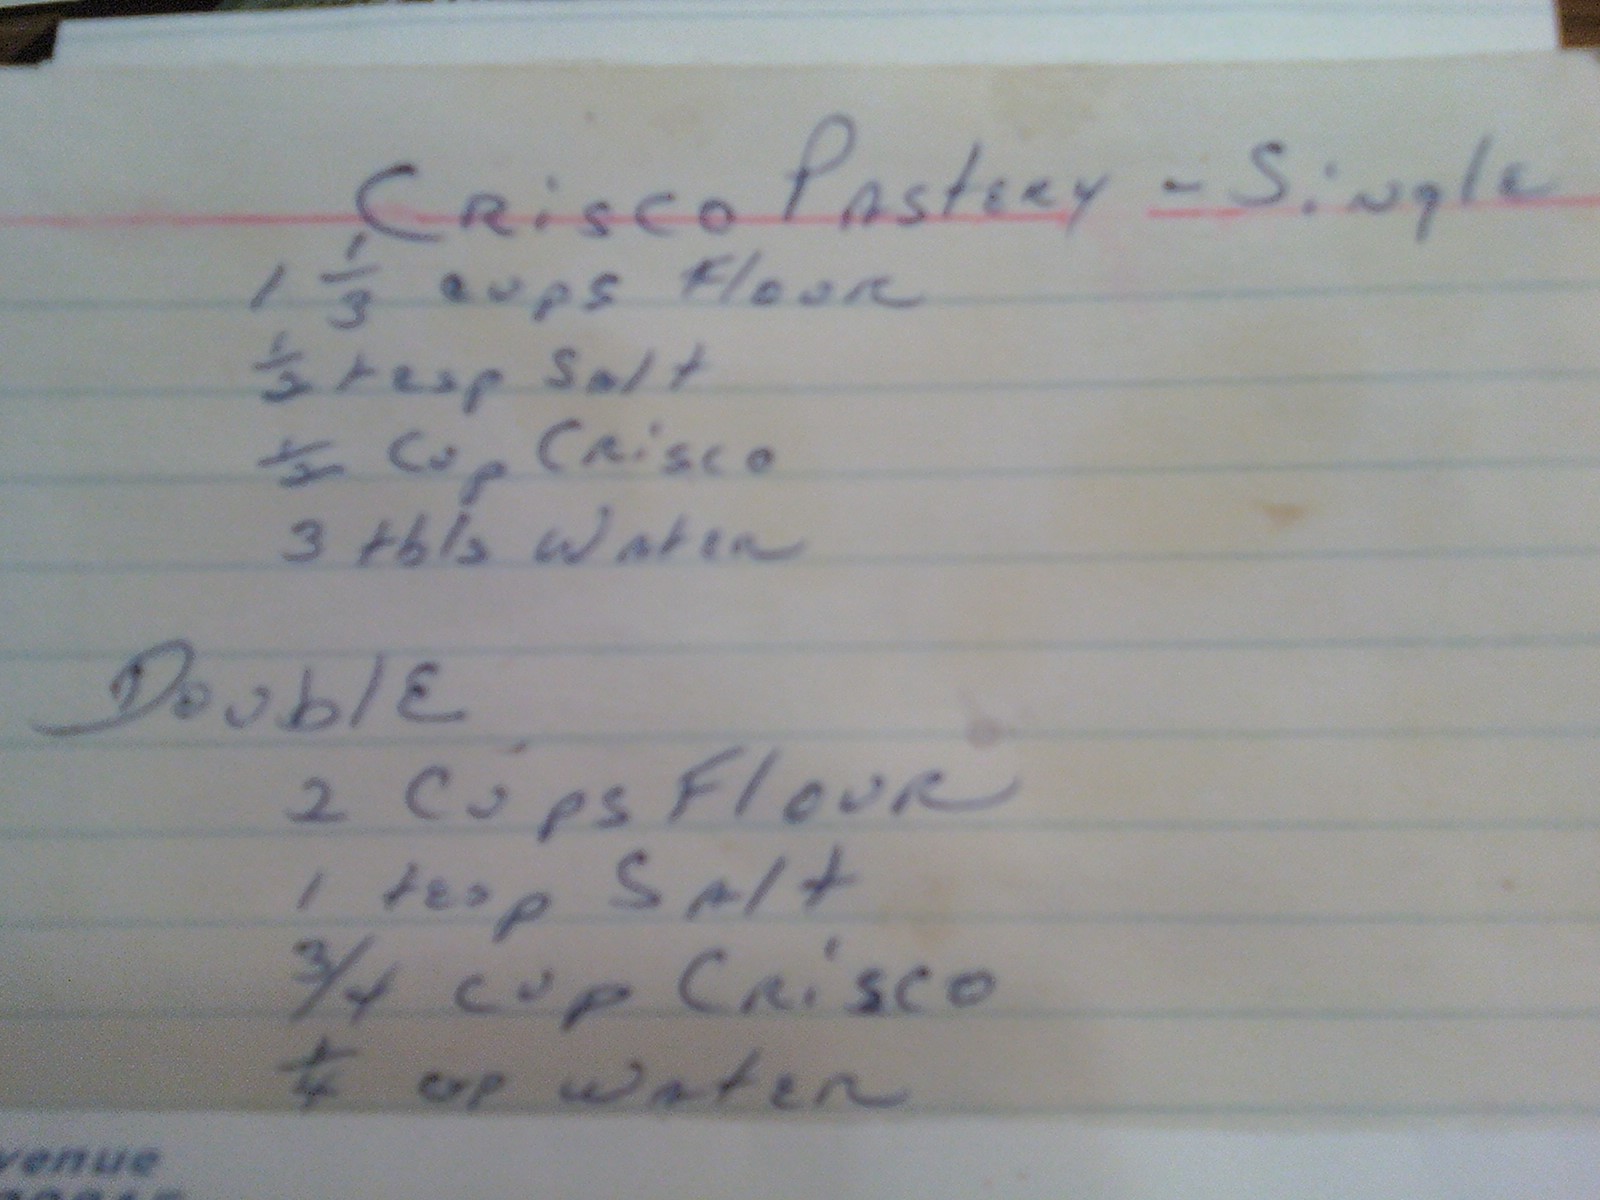 Crisco Pastery - Single
1 1/3 cups Flour
1/2 tesp Salt
1/2 Cup Crisco
3 tbls Water
Double
2 Cups Flour
1 tesp Salt
3/4 cup Crisco
1/4 cup water
venue